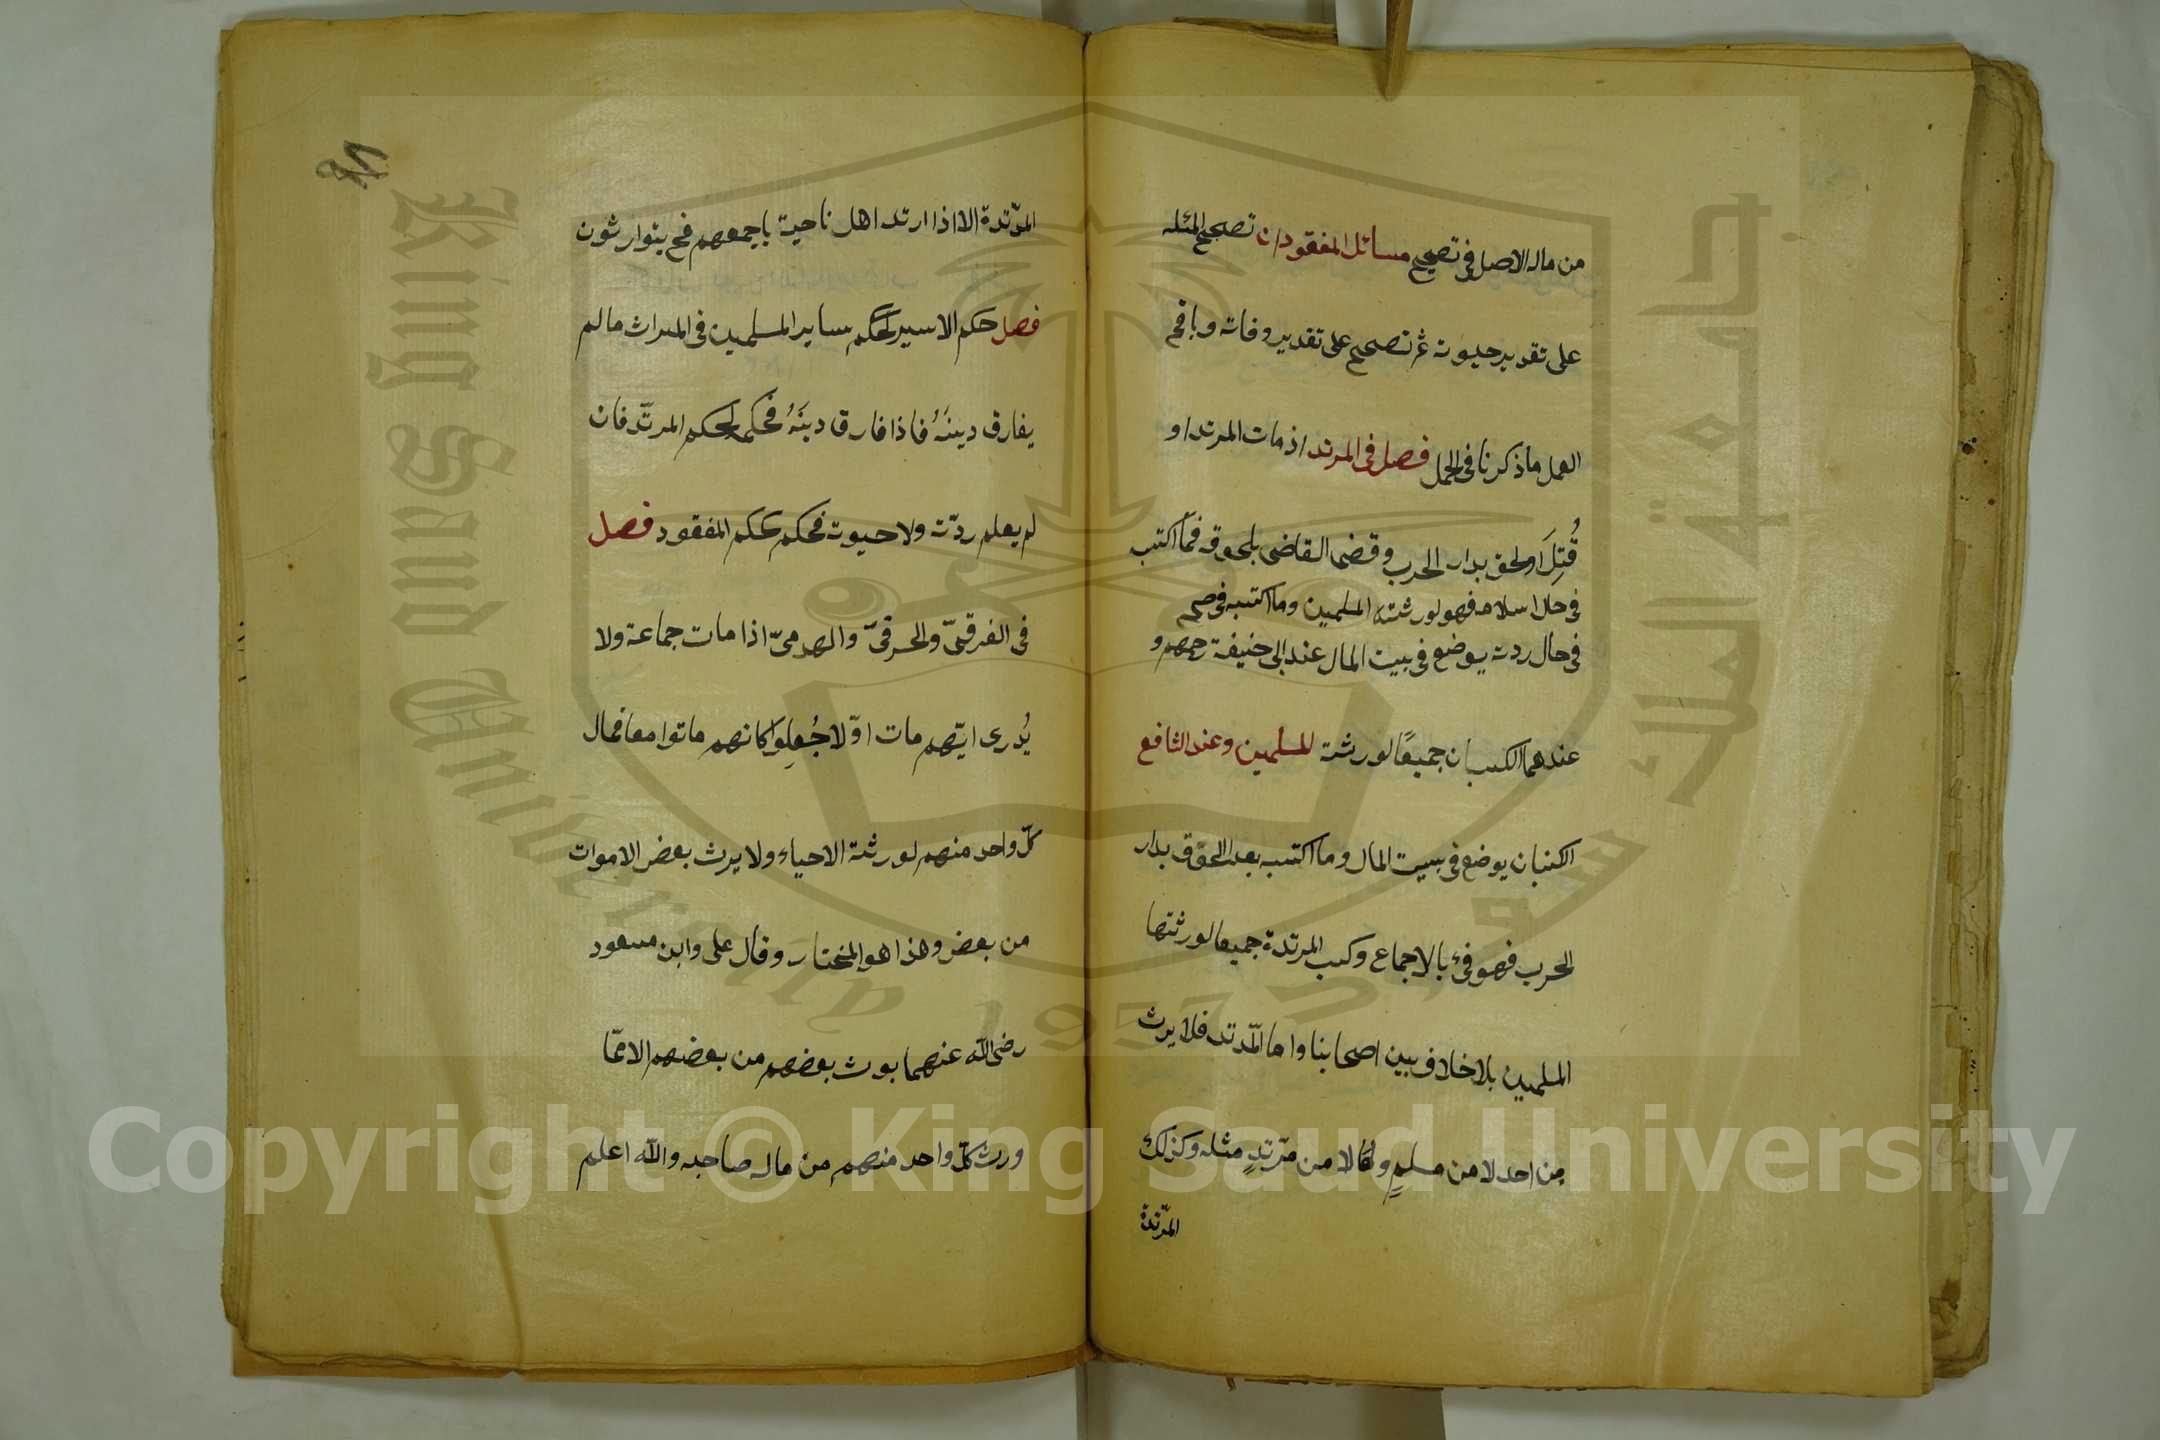 من ماله الاصل فى تصحيح مسائل المفقود ان تصحح المئله
على تقدير حيوته ثم تصحح على تقدير وفاته وباقى
العمل ما ذكرنا فى الحمل فصل فى المرتد اذ مات المرتد او
قُتِلَ او لحق بدار الحرب وقضى القاضى بلحوقه فمّا اكتب
فى حال اسلامه فهو لورثته المسلمين وما اكتسبه
فى حال ردته يوضع فى بيت المال عند ابى حنيفة رحمهم و
عندهما الكسبان جميعًا لورثته المسلمين وعند الشافع
الكسبان يوضع فى بيت المال وما اكتسبه بعد اللحوق بدار
الحرب فهو فئ بالاجماع وكسب المرتدة جميعا لورثتها
المسلمين بلا خلاف بين اصحابنا واما المرتد فلا يرث
من احد لا من مسلمٍ ولا من مرتدٍ مثله وكذلك
المرّتدة
المرّتدة الا اذا ارتد اهل ناحية باجمعهم فح يتوارثون
فصل حكم الاسير كحكم ساير المسلمين فى الميراث مالم
يفارق دينهُ فاذا فارق دينَهُ فحكمه كحكم المرتدّ فان
لم يعلم ردّته ولا حيوته فحكمه كحكم المفقود فصل
فى الغرقىّ والحرقىّ والهدمىّ اذا مات جماعة ولا
يُدرى ايّهم مات اوّلا جُعِلوا كانهم ماتوا معا فمال
كلّ واحد منهم لورثته الاحياء ولا يرث بعض الاموات
من بعض وهذا هو المختار وقال على وابن مسعود
رضى الله عنهما يرث بعضهم من بعضهم الا ممّا
ورث كلّ واحد منهم من مال صاحبه والله اعلم
Copyright © King Saud University
King Saud University
جامعة الملك سعود
1957